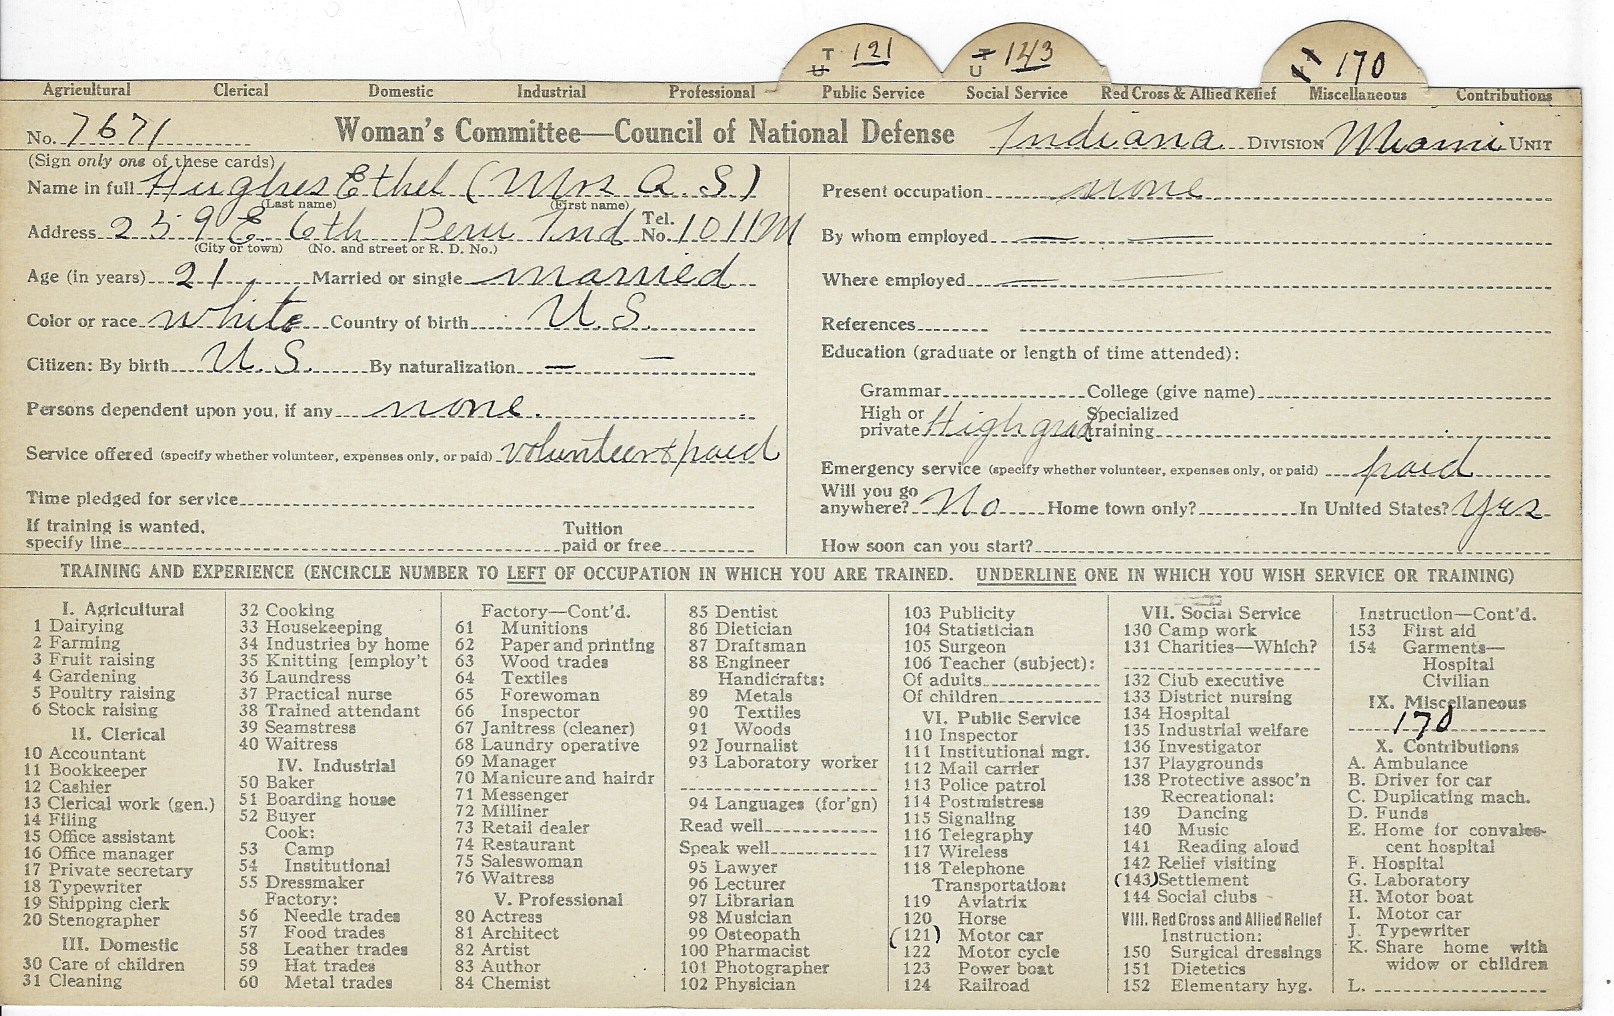 T U 121 T U 143 T U 170
Agricultural Clerical Domestic Industrial Professional Public Service Social Service Red Cross & Allied Relief Miscellaneous Contributions
No. 7671 Woman's Committee—Council of National Defense Indiana DIVISION Miami UNIT
(Sign only one of these cards)
Name in full Hughes Ethel (Mrs A. S.)
(Last name) (First name)
Address 259 E 6th Peru Ind Tel. No. 1011M
(City or town) (No. and street or R. D. No.)
Age (in years) 21 Married or single married
Color or race white Country of birth U. S.
Citizen: By birth U. S. By naturalization — —
Persons dependent upon you, if any none.
Service offered (specify whether volunteer, expenses only, or paid) volunteer & paid
Time pledged for service
If training is wanted, specify line Tuition paid or free
Present occupation none
By whom employed — —
Where employed — —
References
Education (graduate or length of time attended):
Grammar College (give name)
High or private High grad Specialized training
Emergency service (specify whether volunteer, expenses only, or paid) paid
Will you go anywhere? No Home town only? In United States? Yes
How soon can you start?
TRAINING AND EXPERIENCE (ENCIRCLE NUMBER TO LEFT OF OCCUPATION IN WHICH YOU ARE TRAINED. UNDERLINE ONE IN WHICH YOU WISH SERVICE OR TRAINING)
I. Agricultural
1 Dairying
2 Farming
3 Fruit raising
4 Gardening
5 Poultry raising
6 Stock raising
II. Clerical
10 Accountant
11 Bookkeeper
12 Cashier
13 Clerical work (gen.)
14 Filing
15 Office assistant
16 Office manager
17 Private secretary
18 Typewriter
19 Shipping clerk
20 Stenographer
III. Domestic
30 Care of children
31 Cleaning
32 Cooking
33 Housekeeping
34 Industries by home
35 Knitting [employ't
36 Laundress
37 Practical nurse
38 Trained attendant
39 Seamstress
40 Waitress
IV. Industrial
50 Baker
51 Boarding house
52 Buyer
Cook:
53 Camp
54 Institutional
55 Dressmaker
Factory:
56 Needle trades
57 Food trades
58 Leather trades
59 Hat trades
60 Metal trades
Factory—Cont'd.
61 Munitions
62 Paper and printing
63 Wood trades
64 Textiles
65 Forewoman
66 Inspector
67 Janitress (cleaner)
68 Laundry operative
69 Manager
70 Manicure and hairdr
71 Messenger
72 Milliner
73 Retail dealer
74 Restaurant
75 Saleswoman
76 Waitress
V. Professional
80 Actress
81 Architect
82 Artist
83 Author
84 Chemist
85 Dentist
86 Dietician
87 Draftsman
88 Engineer
Handicrafts:
89 Metals
90 Textiles
91 Woods
92 Journalist
93 Laboratory worker
94 Languages (for'gn)
Read well
Speak well
95 Lawyer
96 Lecturer
97 Librarian
98 Musician
99 Osteopath
100 Pharmacist
101 Photographer
102 Physician
103 Publicity
104 Statistician
105 Surgeon
106 Teacher (subject):
Of adults
Of children
VI. Public Service
110 Inspector
111 Institutional mgr.
112 Mail carrier
113 Police patrol
114 Postmistress
115 Signaling
116 Telegraphy
117 Wireless
118 Telephone
Transportation:
119 Aviatrix
120 Horse
(121) Motor car
122 Motor cycle
123 Power boat
124 Railroad
VII. Social Service
130 Camp work
131 Charities—Which?
132 Club executive
133 District nursing
134 Hospital
135 Industrial welfare
136 Investigator
137 Playgrounds
138 Protective assoc'n
Recreational:
139 Dancing
140 Music
141 Reading aloud
142 Relief visiting
(143) Settlement
144 Social clubs
VIII. Red Cross and Allied Relief
Instruction:
150 Surgical dressings
151 Dietetics
152 Elementary hyg.
Instruction—Cont'd.
153 First aid
154 Garments—
Hospital
Civilian
IX. Miscellaneous
170
X. Contributions
A. Ambulance
B. Driver for car
C. Duplicating mach.
D. Funds
E. Home for convales-
cent hospital
F. Hospital
G. Laboratory
H. Motor boat
I. Motor car
J. Typewriter
K. Share home with
widow or children
L.